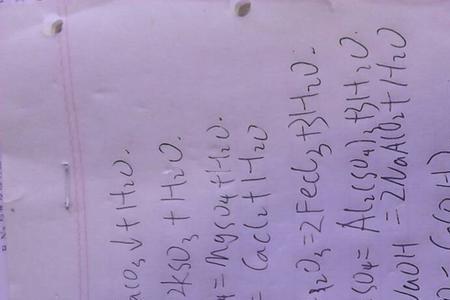 aCO3↓ + H2O.
2KSO3 + H2O.
4 = MgSO4 + H2O.
= CaCl2 + H2O
2O3 = 2FeCl3 + 3H2O.
SO4 = Al2(SO4)3 + 3H2O.
NaOH = 2NaAlO2 + H2O
Ca(OH)